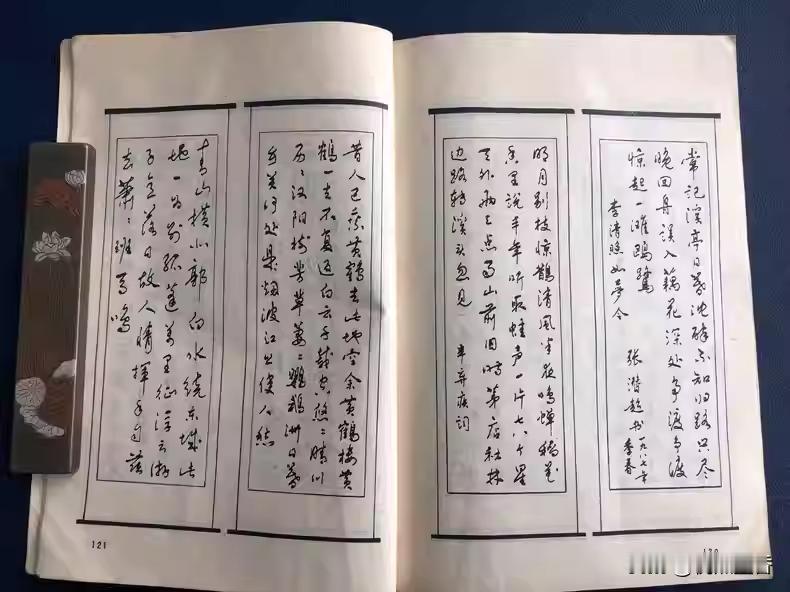 常记溪亭日暮沈醉不知归路兴尽
晚回舟误入藕花深处争渡争渡
惊起一滩鸥鹭
李清照如梦令
张潜超书一九八七年季春
明月别枝惊鹊清风半夜鸣蝉稻花
香里说丰年听取蛙声一片七八个星
天外两三点雨山前旧时茅店社林
边路转溪头忽见 辛弃疾词
昔人已乘黄鹤去此地空余黄鹤楼黄
鹤一去不复返白云千载空悠〻晴川
历〻汉阳树芳草萋〻鹦鹉洲日暮
乡关何处是烟波江上使人愁
青山横北郭白水绕东城此
地一为别孤蓬万里征浮云游
子意落日故人情挥手自兹
去萧〻班马鸣
121